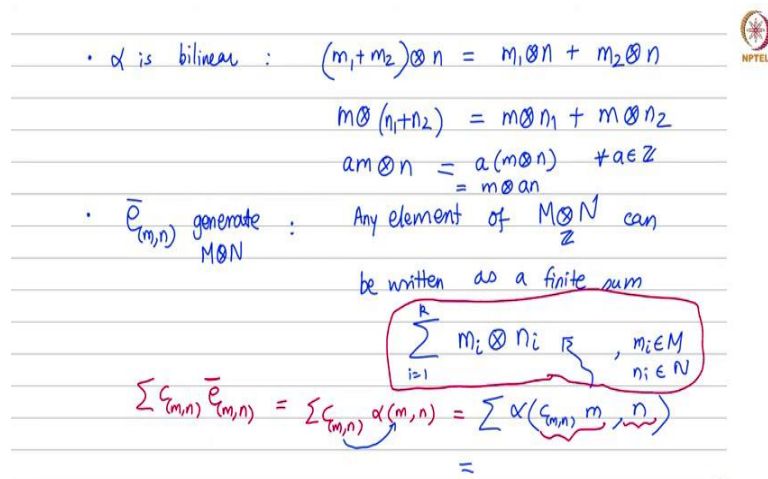 • α is bilinear : (m₁+m₂)⊗n = m₁⊗n + m₂⊗n
m⊗(n₁+n₂) = m⊗n₁ + m⊗n₂
am⊗n = a(m⊗n) ∀a∈ℤ
= m⊗an
• ē₍ₘ,ₙ₎ generate M⊗N : Any element of M⊗N can
ℤ
be written as a finite sum
k
∑ mᵢ⊗nᵢ , mᵢ∈M
i=1 nᵢ∈N
∑ c₍ₘ,ₙ₎ ē₍ₘ,ₙ₎ = ∑ c₍ₘ,ₙ₎ α(m,n) = ∑ α(c₍ₘ,ₙ₎ m, n)
=
NPTEL